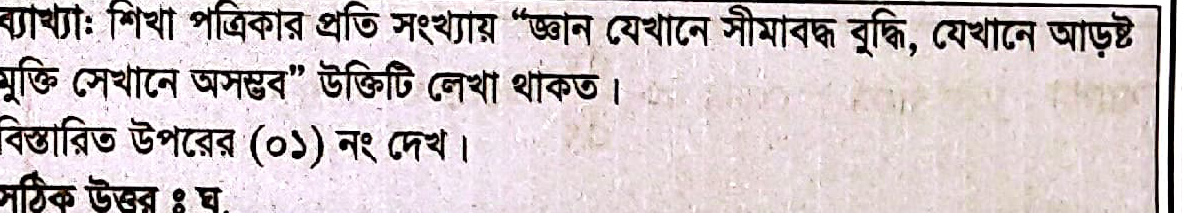 ব্যাখ্যা: শিখা পত্রিকার প্রতি সংখ্যায় “জ্ঞান যেখানে সীমাবদ্ধ বুদ্ধি, যেখানে আড়ষ্ট
মুক্তি সেখানে অসম্ভব” উক্তিটি লেখা থাকত।
বিস্তারিত উপরের (০১) নং দেখ।
সঠিক উত্তর ঃ ঘ.